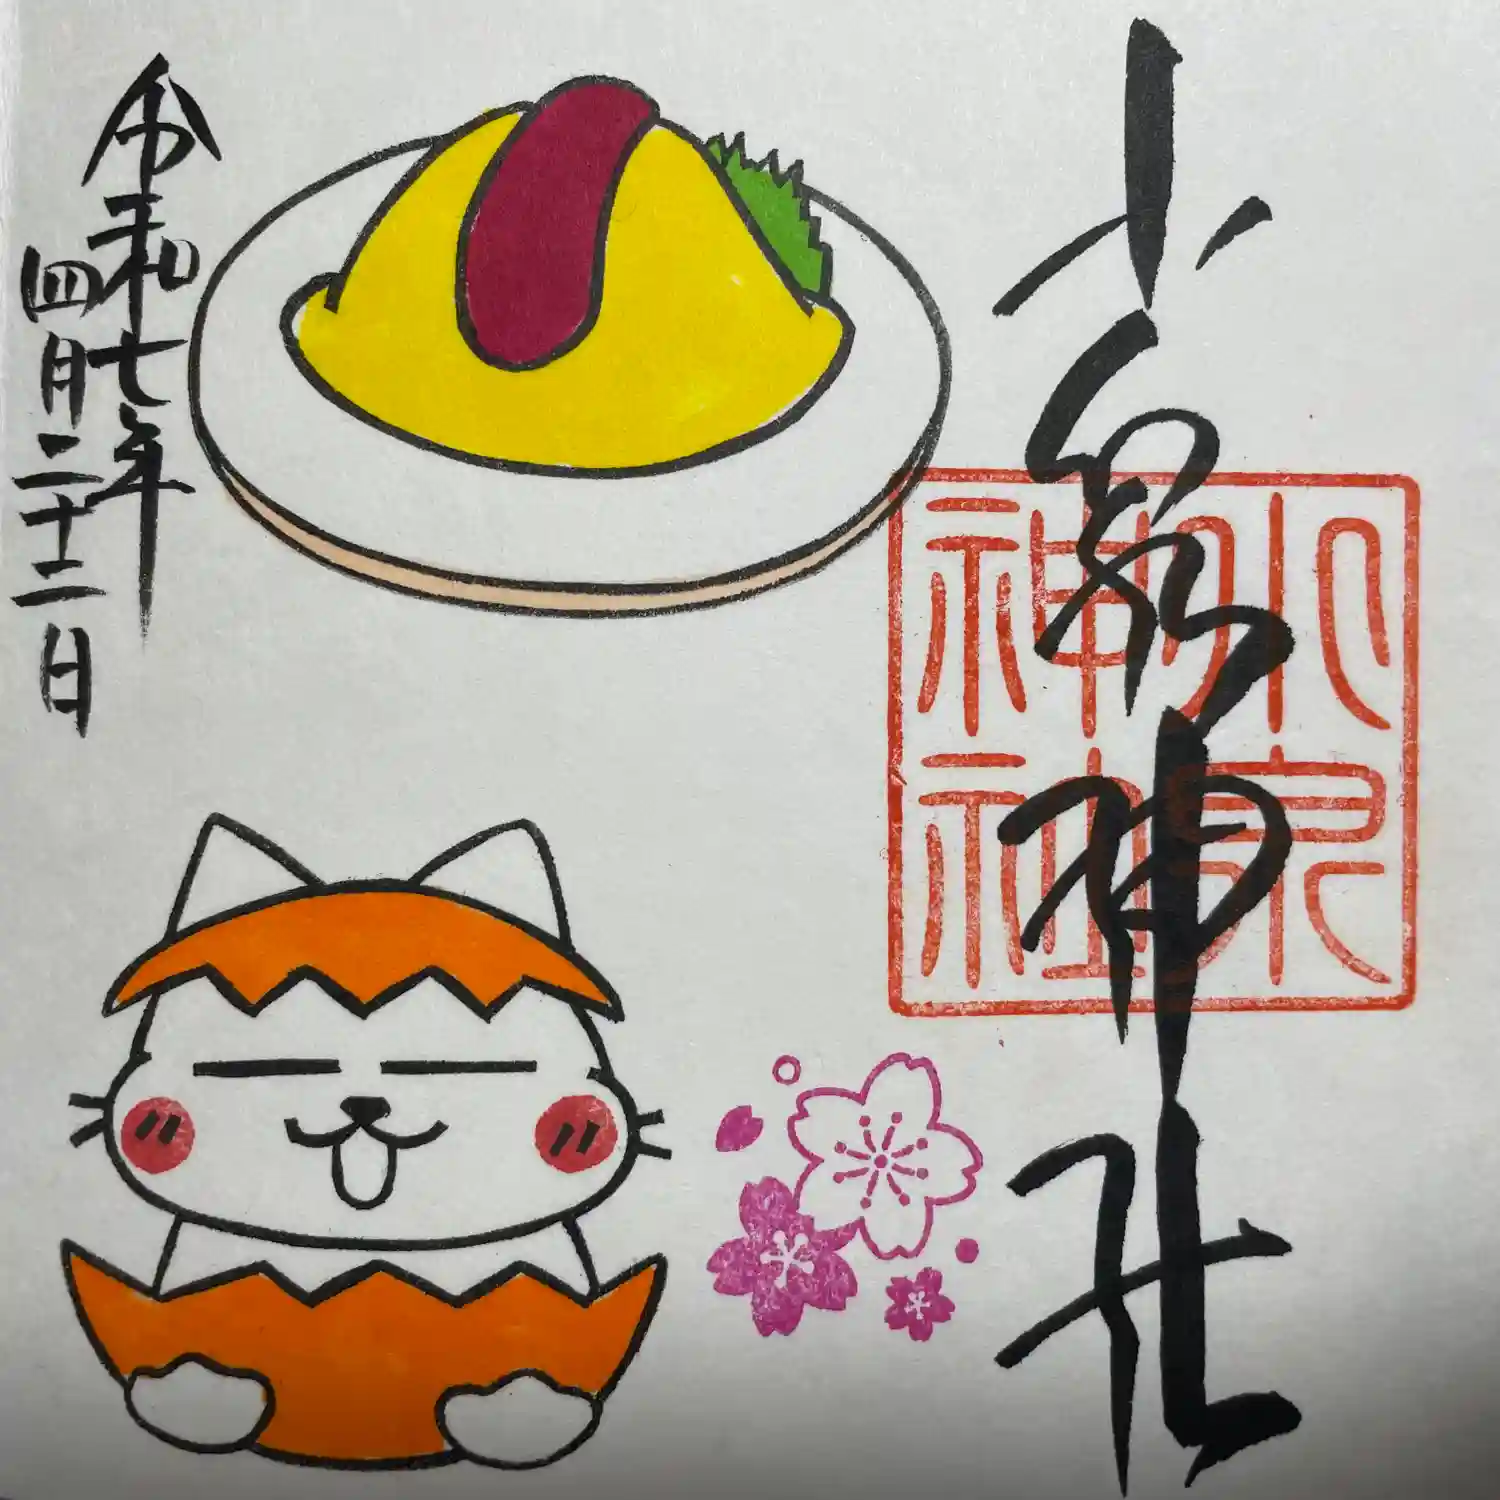 小泉神社
小泉神社
令和七年
四月二十二日